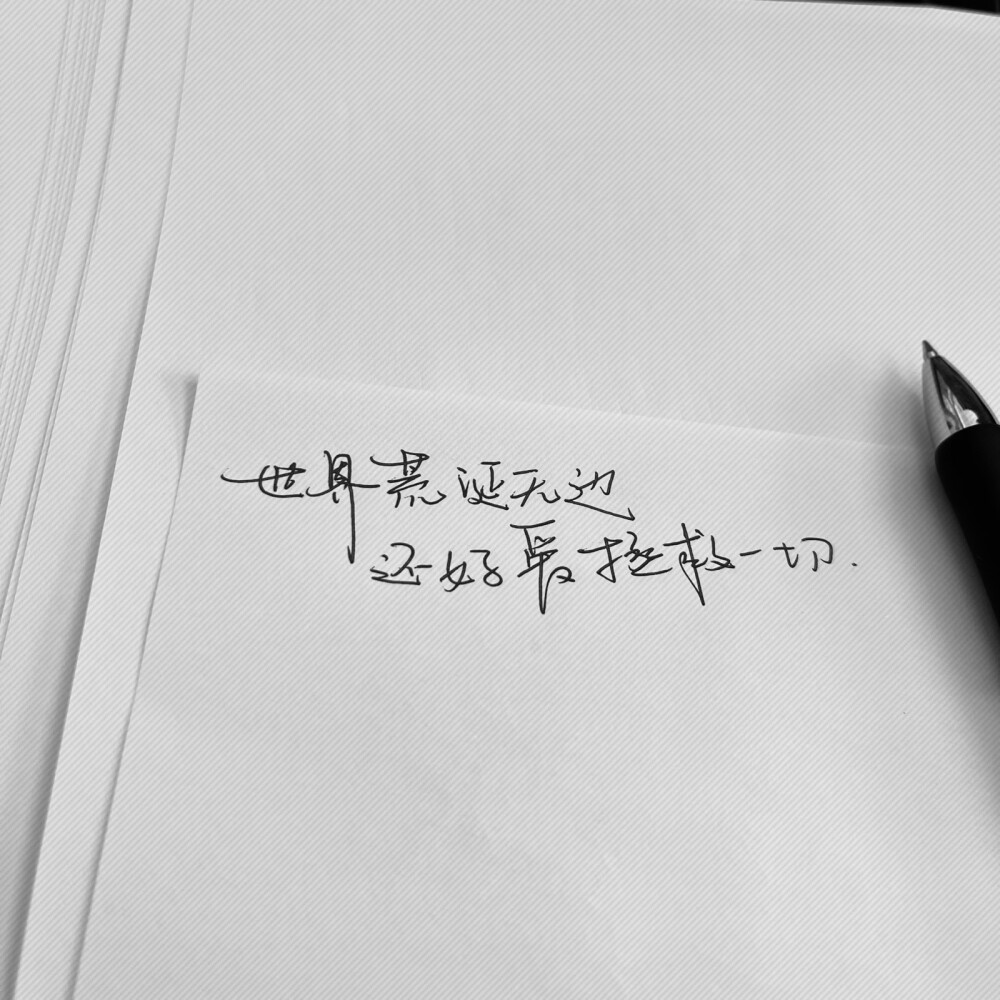 世界荒诞无边
还好拯救一切.